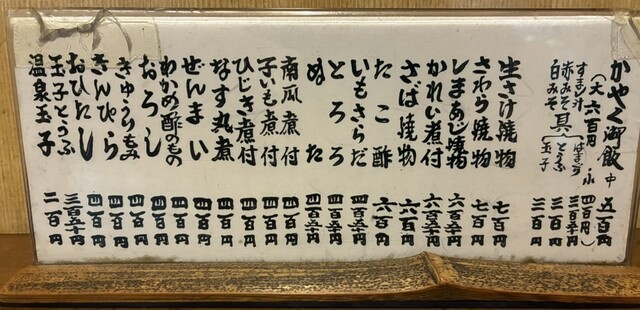 かやく御飯 中 五百円
(大 六百円 小 四百円)
すまし汁 三百五十円
赤みそ 具 はまぐり 三百円
白みそ とうふ 玉子 三百円
生さけ焼物 七百円
さわら焼物 七百円
しまあじ焼物 六百五十円
かれい煮付 六百五十円
さば焼物 六百円
たこ酢 六百円
いもさらだ 四百五十円
とろろ 四百五十円
ぬた 四百五十円
南瓜煮付 四百円
子いも煮付 四百円
ひじき煮付 四百円
なす丸煮 四百円
ぜんまい 四百円
わかめ酢のもの 四百円
おろし 四百円
きゅうりもみ 四百円
きんぴら 四百円
おひたし 四百円
玉子とうふ 三百五十円
温泉玉子 二百円